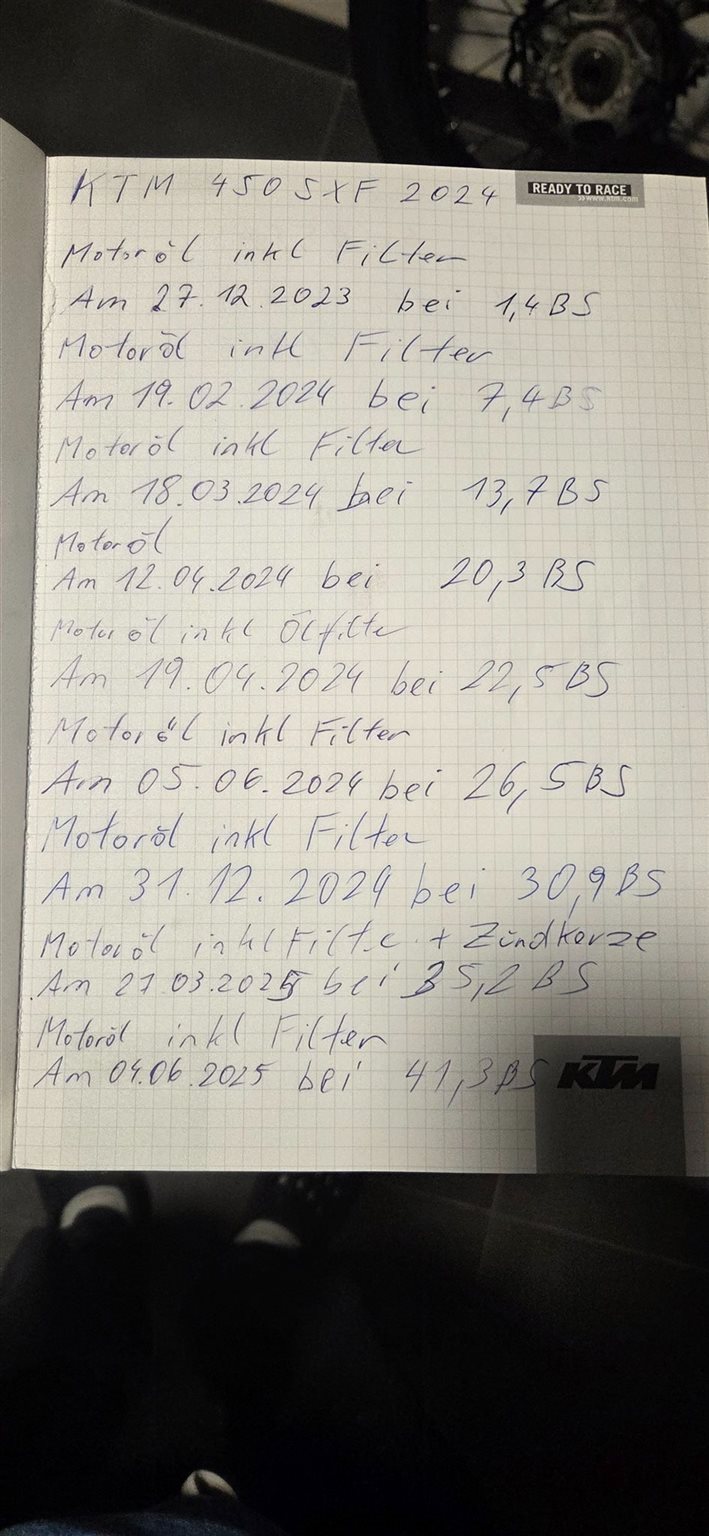 KTM 450 SXF 2024
READY TO RACE
>> www.ktm.com
Motoröl inkl Filter
Am 27.12.2023 bei 1,4 BS
Motoröl inkl Filter
Am 19.02.2024 bei 7,4 BS
Motoröl inkl Filter
Am 18.03.2024 bei 13,7 BS
Motoröl
Am 12.04.2024 bei 20,3 BS
Motoröl inkl Ölfilter
Am 19.04.2024 bei 22,5 BS
Motoröl inkl Filter
Am 05.06.2024 bei 26,5 BS
Motoröl inkl Filter
Am 31.12.2024 bei 30,9 BS
Motoröl inkl Filter + Zündkerze
Am 27.03.2025 bei 35,2 BS
Motoröl inkl Filter
Am 04.06.2025 bei 41,3 BS
KTM